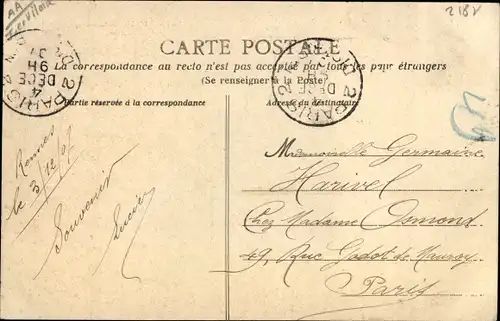 2182
CARTE POSTALE
La correspondance au recto n'est pas acceptée par tous les pays étrangers
(Se renseigner à la Poste)
Partie réservée à la correspondance
Adresse du destinataire
PARIS 2
9H
4
DECE
PARIS 2
Rennes
le 3/12/07
Souvenir
Lucien
Mademoiselle Germaine
Harivel
Chez Madame Osmond
49, Rue Godot de Mauroy
Paris